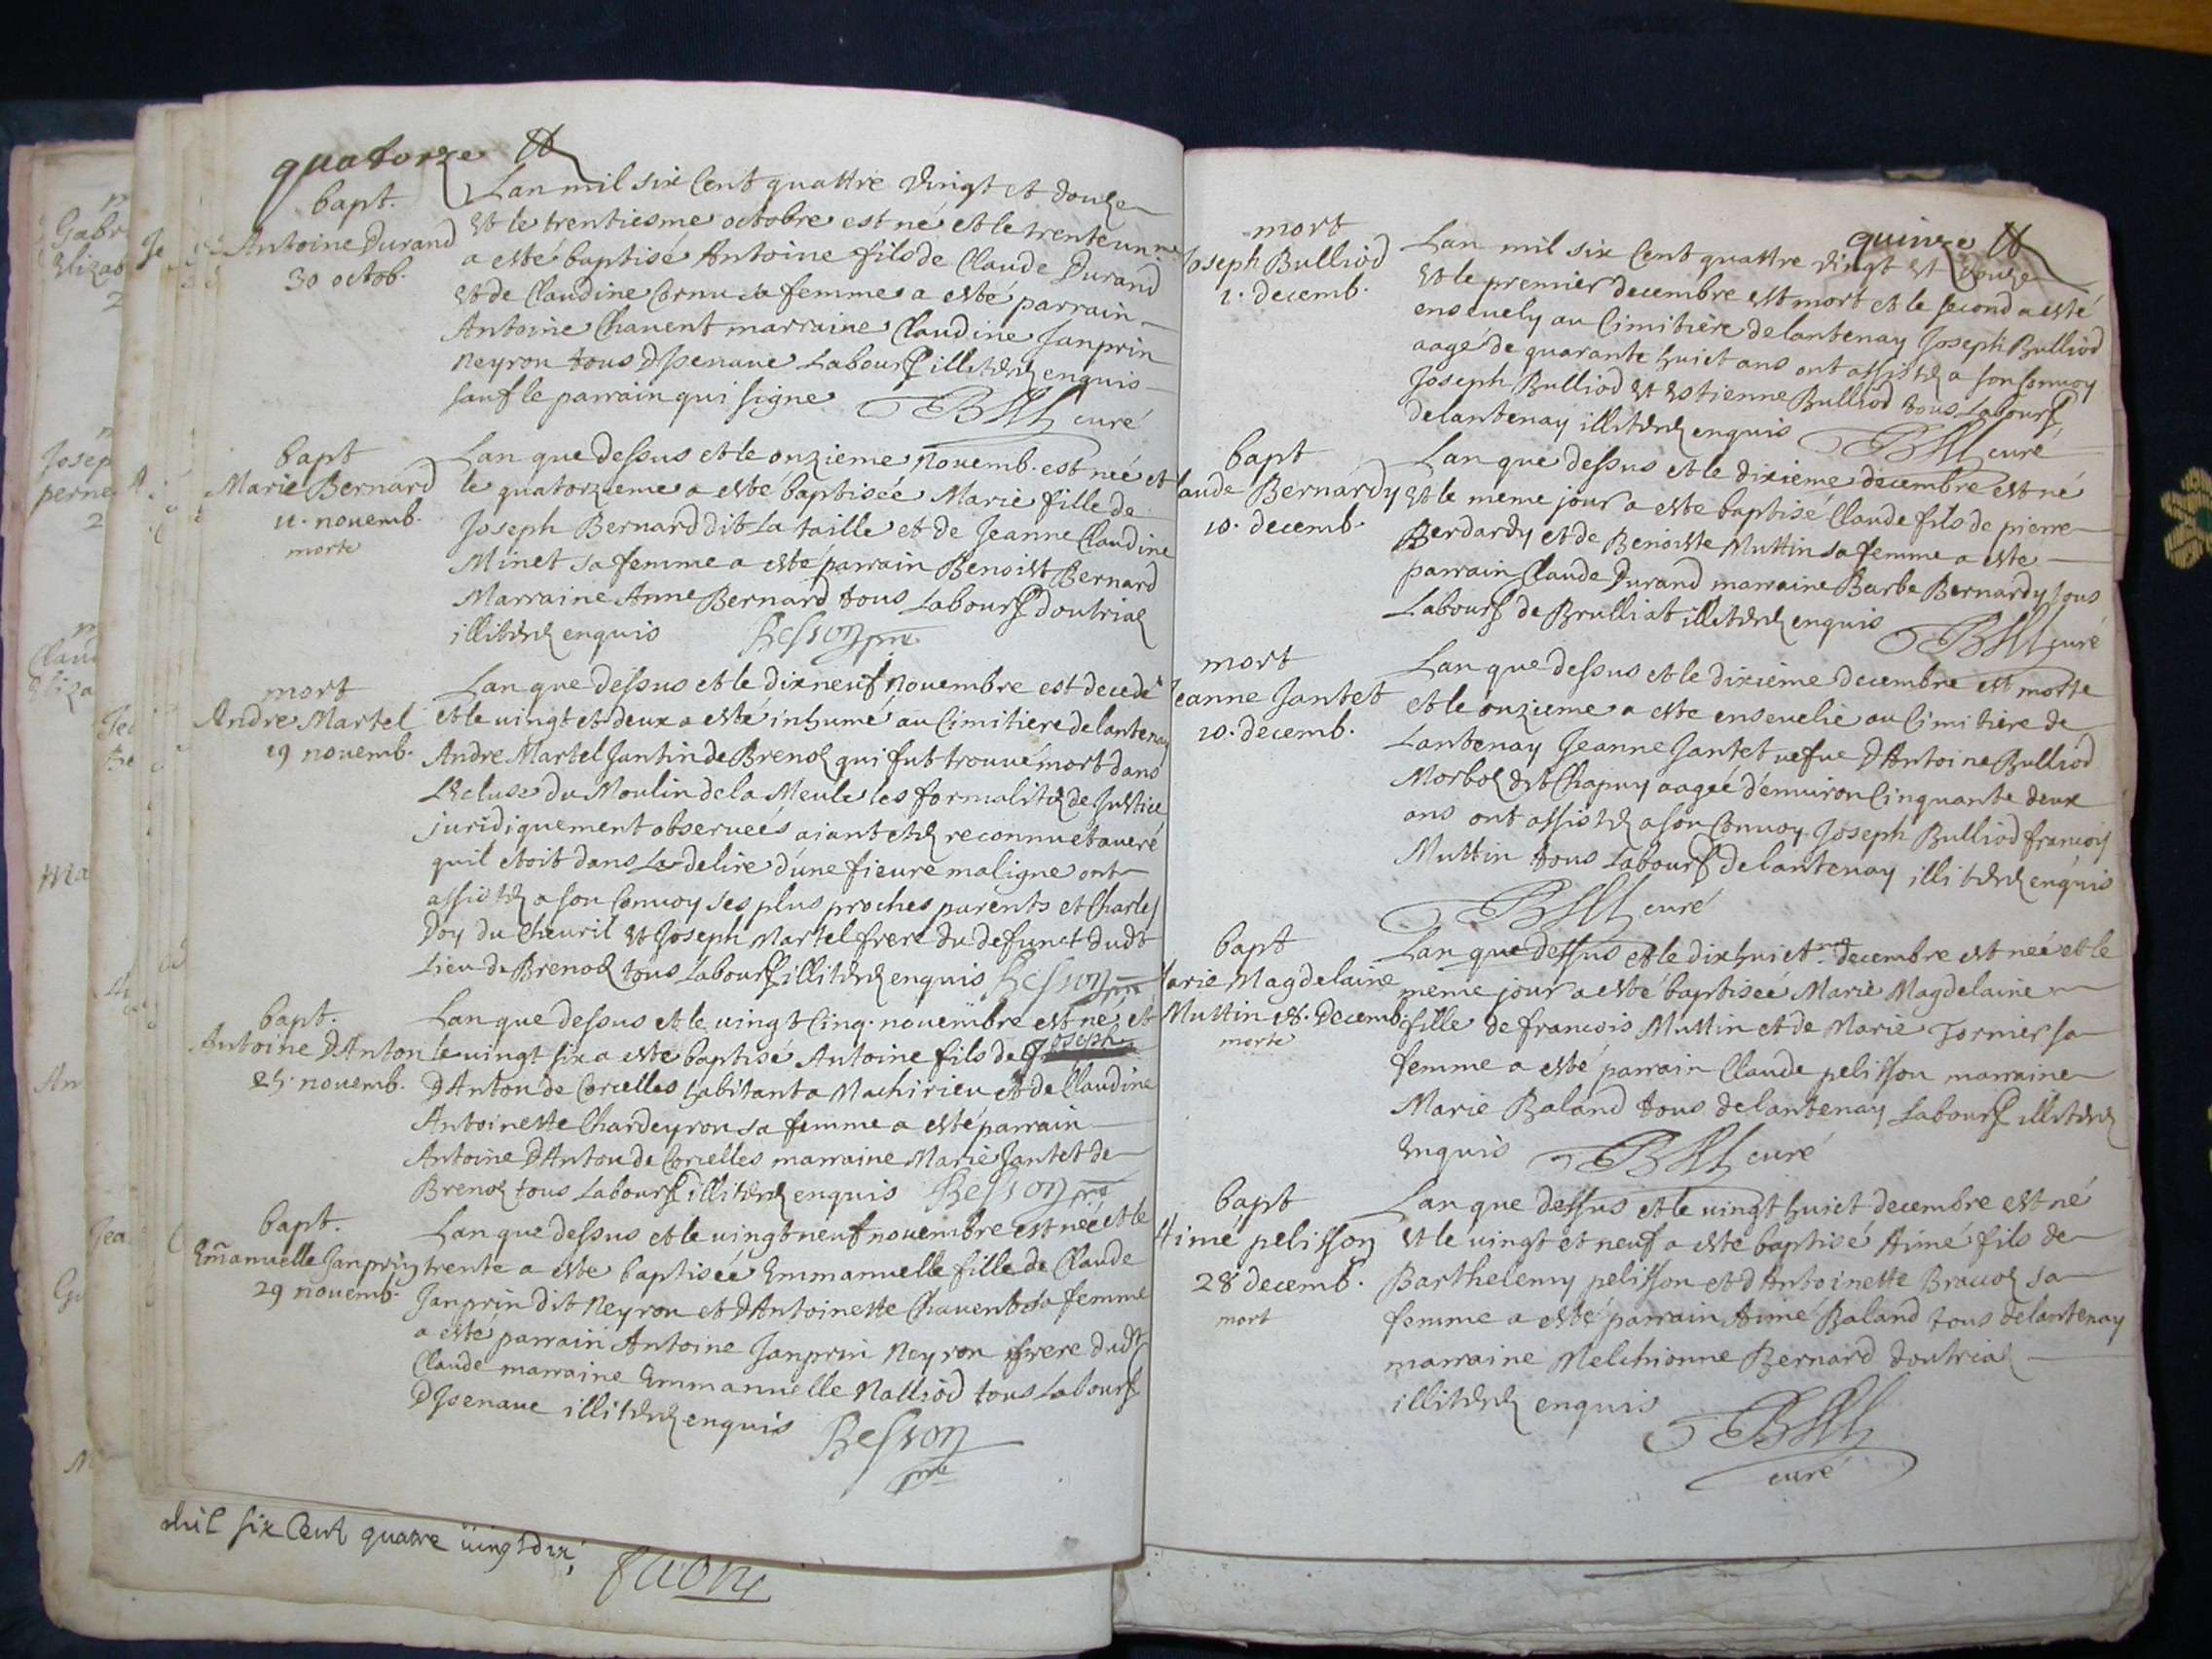 quatorze
bapt.
Antoine Durand
30 octob.
Lan mil six Cent quattre Vingt et douze
Et le trentiesme octobre est né et le trente un.me
a esté baptisé Antoine fils de Claude Durand
Et de Claudine Cornu sa femme a esté parrain
Antoine Chauent marraine Claudine Janprin
Neyron tous DIsenaue Labours illiterez enquis
sauf le parrain qui signe curé
bapt
Marie Bernard
11. novemb.
morte
Lan que dessus et le onzieme Nouemb. est née et
le quatorzieme a esté baptisée Marie fille de
Joseph Bernard dit La taille et de Jeanne Claudine
Minet sa femme a esté parrain Benoist Bernard
Marraine Anne Bernard tous Labours doutriaz
illiterez enquis Besson pre
mort
Andre Martel
19 nouemb.
Lan que dessus et le dixneuf Nouembre est decedé
et le uingt et deux a esté inhumé au Cimitiere de lantenay
Andre Martel Jantin de Brenoz qui fut trouué mort dans
LEcluse du Moulin de la Meule les formalitez de Justice
juridiquement obseruées aiant etez reconnu et aueré
quil etoit dans Le delire d'une fieure maligne ont
assistez a son Conuoy ses plus proches parents et Charles
Doy du Cheuril Et Joseph Martel frere du defunct dudt
Lieu de Brenoz tous Labours illiterez enquis Besson pre
bapt.
Antoine DAnton
25. nouemb.
Lan que dessus et le uingt Cinq. nouembre est né et
le uingt six a este baptisé Antoine fils de Joseph
DAnton de Corcelles habitant a Machirieu et de Claudine
Antoinette Chardeyron sa femme a esté parrain
Antoine DAnton de Corcelles marraine Marie Jantet de
Brenoz tous Labours illiterez enquis Besson pre
bapt.
Emanuelle Janprin
29 nouemb.
Lan que dessus et le uingt neuf nouembre est née et le
trente a este baptisée Emmanuelle fille de Claude
Janprin dit Neyron et DAntoinette Chauent sa femme
a esté parrain Antoine Janprin Neyron frere dudt
Claude marraine Emmanuelle Nalliod tous Labours
DIsenaue illiterez enquis Besson
pre
mil six Cent quatre uingt dix,
quinze
mort
Joseph Bulliod
1. decemb.
Lan mil six Cent quattre Vingt Et douze
Et le premier decembre est mort et le second a esté
enseuely au Cimitière de lantenay Joseph Bulliod
aagé de quarante huict ans ont assistez a son Conuoy
Joseph Bulliod Et Estienne Bulliod tous Labours
de lantenay illiterez enquis curé
bapt
laude Bernardy
10. decemb.
Lan que dessus et le dixieme decembre est né
Et le meme jour a este baptisé Claude fils de pierre
Berdardy et de Benoiste Muttin sa femme a este
parrain Claude Durand marraine Barbe Bernardy tous
Labours de Brulliat illiterez enquis curé
mort
Jeanne Jantet
10. decemb.
Lan que dessus et le dixieme decembre est morte
et le onzieme a este enseuelie au Cimitiere de
Lantenay Jeanne Jantet uefue DAntoine Bulliod
Morboz dit Chapuy aagée d'enuiron Cinquante deux
ans ont assistez a son Conuoy Joseph Bulliod francois
Muttin tous Labours de lantenay illiterez enquis
curé
bapt
Marie Magdelaine
Muttin 18. Decemb.
morte
Lan que dessus et le dix huict.me decembre est née et le
meme jour a esté baptisée Marie Magdelaine
fille de francois Muttin et de Marie Tornier sa
femme a esté parrain Claude pelisson marraine
Marie Baland tous de lantenay Labours illiterez
Enquis curé
bapt
Aimé pelisson
28 decemb.
mort
Lan que dessus et le uingt huict decembre est né
Et le uingt et neuf a este baptisé Aimé fils de
Barthelemy pelisson et dAntoinette Brauoz sa
femme a esté parrain Aimé Baland tous de lantenay
marraine Melchionne Bernard doutriaz
illiterez enquis
curé